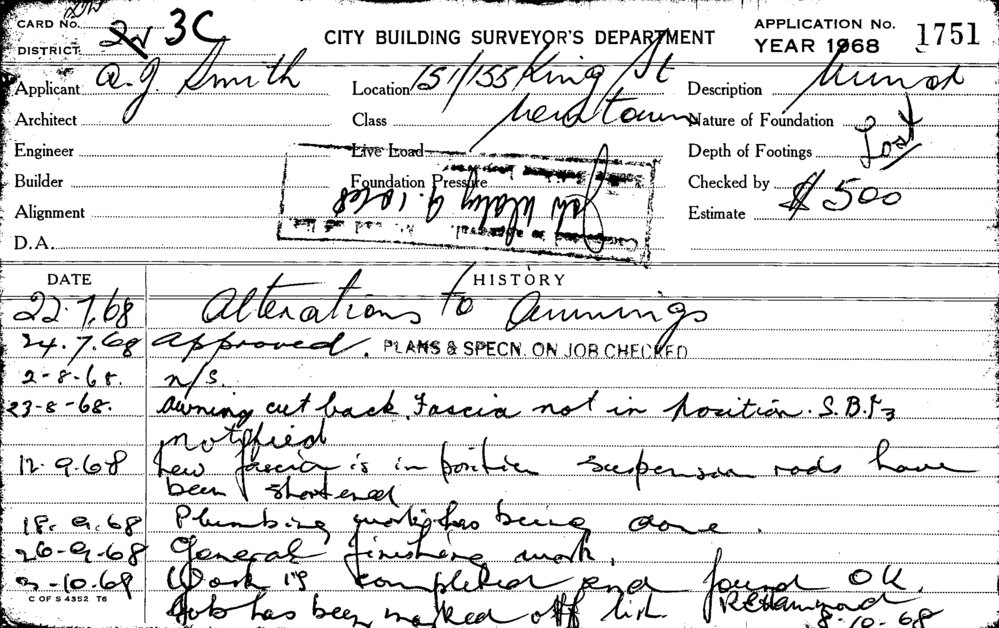 CARD No.
DISTRICT 3C
CITY BUILDING SURVEYOR'S DEPARTMENT
APPLICATION No. 1751
YEAR 1968
Applicant A. J. Smith
Location 151/155 King St
Description Minor
Architect
Class Newtown
Nature of Foundation
Engineer
Live Load
Depth of Footings Lost
Builder
Foundation Pressure
Checked by
Alignment
Estimate $500
D.A.
DATE HISTORY
22.7.68 Alterations to Awnings
24.7.68 Approved. PLANS & SPECN. ON JOB CHECKED
2-8-68. n/s.
23-8-68. Awning cut back. Fascia not in position. S.B.
notified
12.9.68 New fascia is in position suspension rods have
been shortened
18.9.68 Plumbing work has being done.
26-9-68 General finishing work.
Work is completed and found OK.
C OF S 4352 T6
Job has been marked off list. R E Hammond
8-10-68